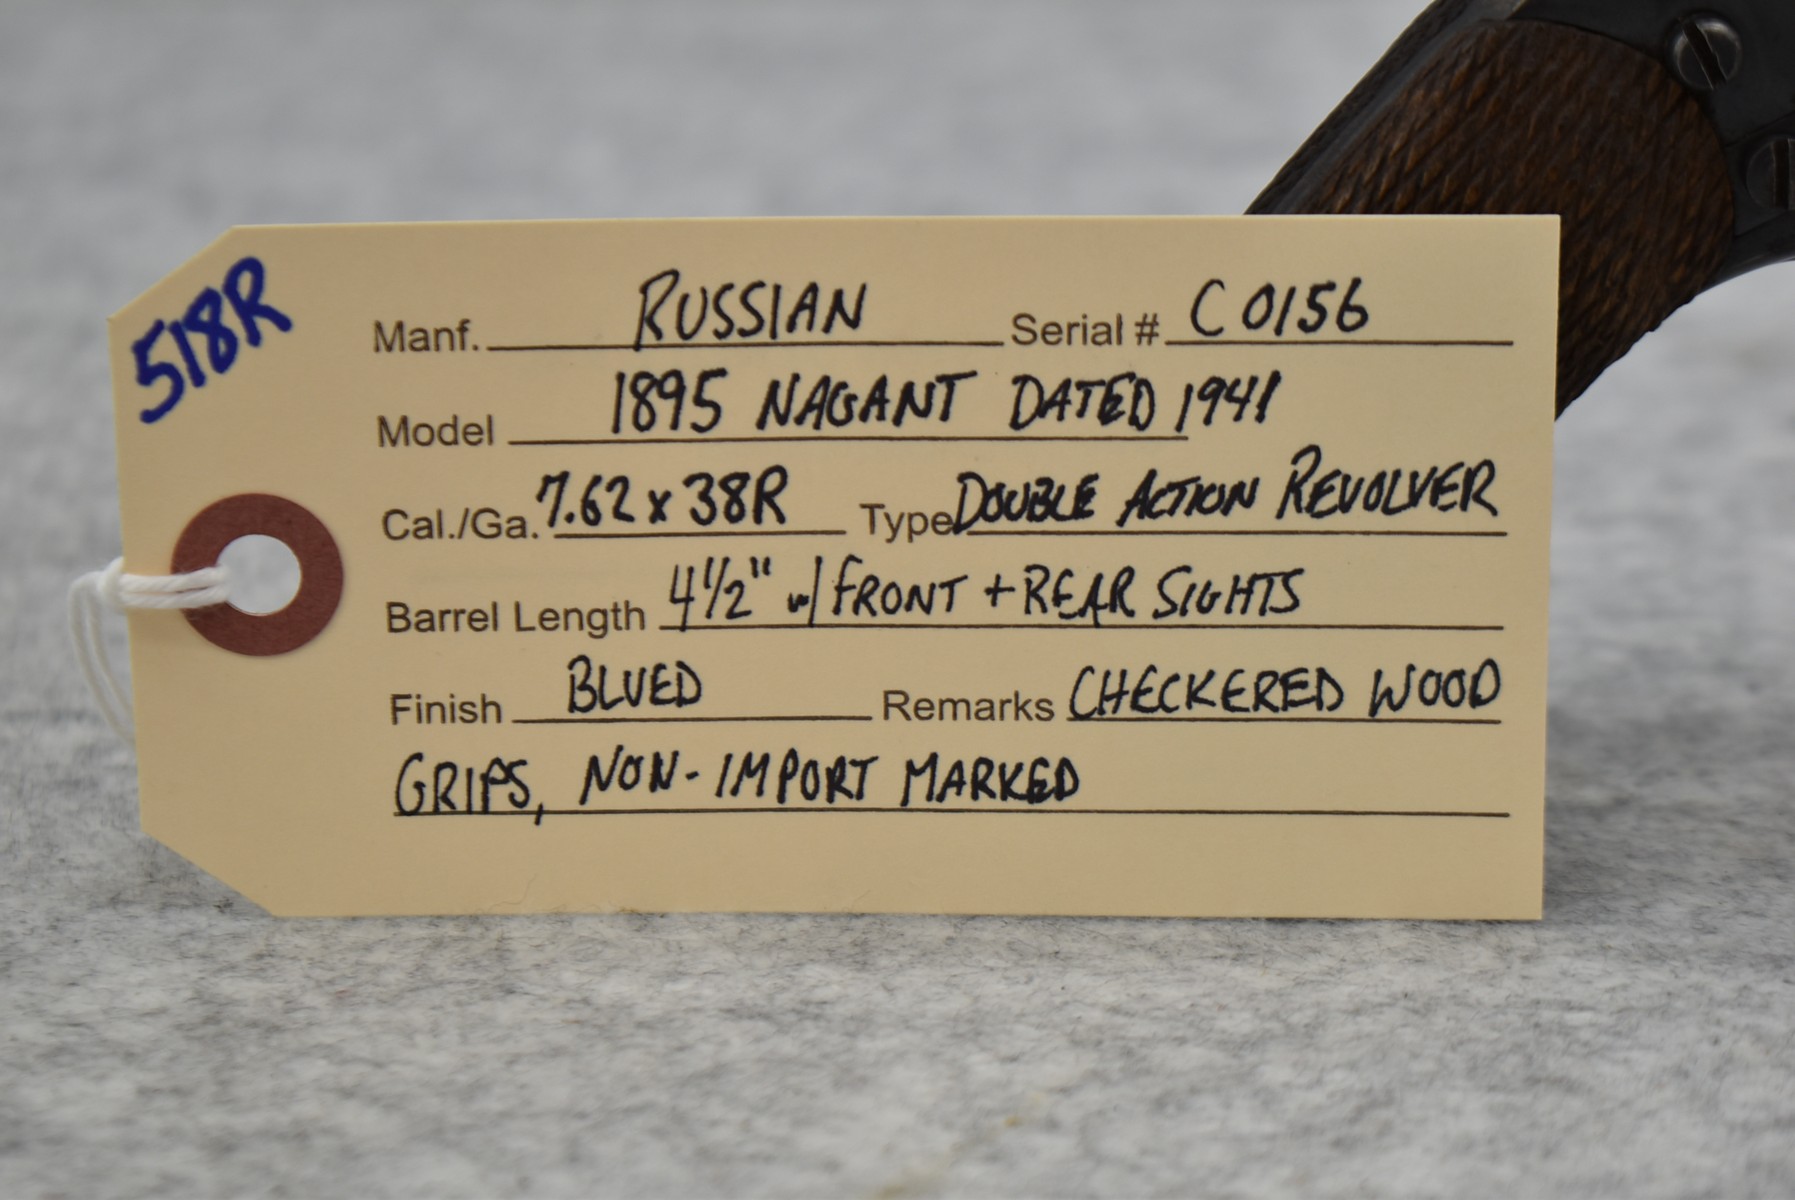 518R
Manf. RUSSIAN Serial # C 0156
Model 1895 NAGANT DATED 1941
Cal./Ga. 7.62 x 38R Type DOUBLE ACTION REVOLVER
Barrel Length 4½" w/ FRONT + REAR SIGHTS
Finish BLUED Remarks CHECKERED WOOD
GRIPS, NON-IMPORT MARKED